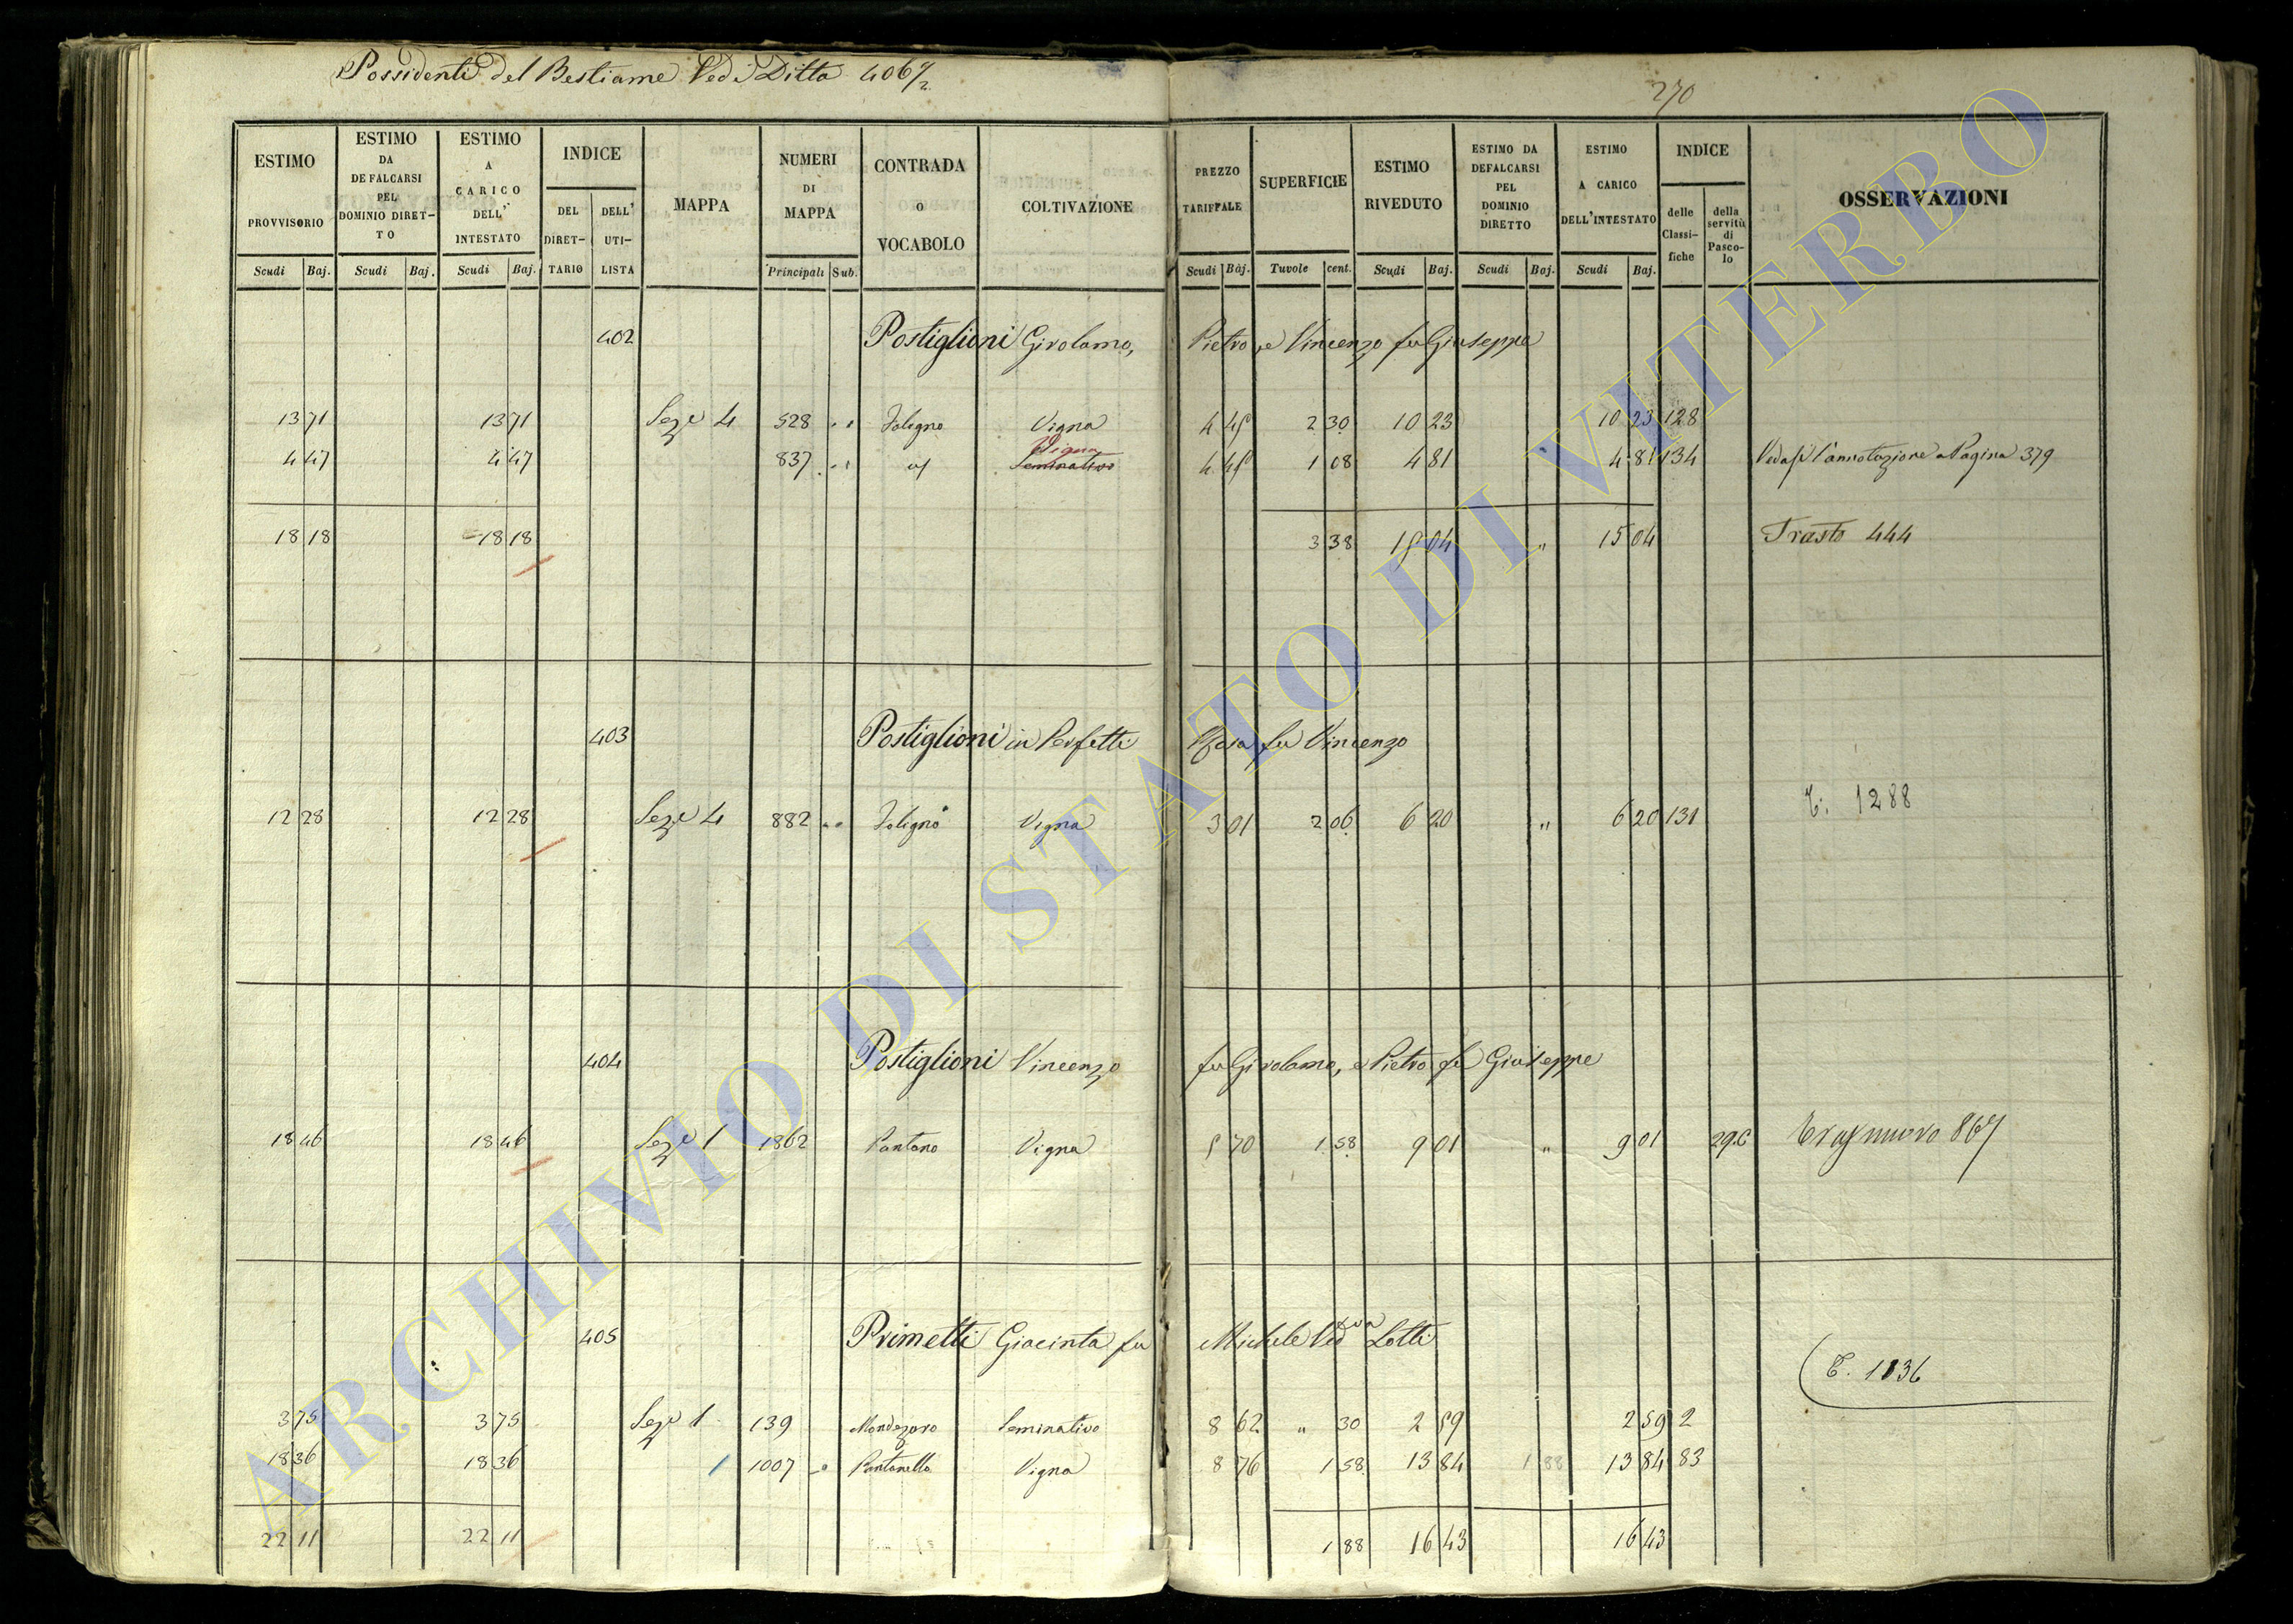 Possidenti del Bestiame Vedi Ditta 406 1/2
270
ESTIMO PROVVISORIO Scudi Baj.
ESTIMO DA DEFALCARSI PEL DOMINIO DIRETTO Scudi Baj.
ESTIMO A CARICO DELL' INTESTATO Scudi Baj.
INDICE DEL DIRETTARIO DELL' UTILISTA
MAPPA
NUMERI DI MAPPA Principali Sub.
CONTRADA O VOCABOLO
COLTIVAZIONE
PREZZO TARIFFALE Scudi Baj.
SUPERFICIE Tavole cent.
ESTIMO RIVEDUTO Scudi Baj.
ESTIMO DA DEFALCARSI PEL DOMINIO DIRETTO Scudi Baj.
ESTIMO A CARICO DELL'INTESTATO Scudi Baj.
INDICE delle Classifiche della servitù di Pascolo
OSSERVAZIONI
402 Postiglioni Girolamo, Pietro, e Vincenzo fu Giuseppe
13 71 13 71 Seze 4 528 " " Foligno Vigna 4 45 2 30 10 23 10 23 128
Vigna
4 47 4 47 837 " " id Seminativo 4 45 1 08 4 81 " 4 81 134 Vedasi l'annotazione a Pagina 379
18 18 18 18 3 38 15 04 " 15 04 Trasto 444
403 Postiglioni in Perfetti Rosa fu Vincenzo
12 28 12 28 Seze 4 882 " " Foligno Vigna 3 01 2 06 6 20 " 6 20 131 T. 1288
404 Postiglioni Vincenzo fu Girolamo, e Pietro fu Giuseppe
18 46 18 46 Seze 1 1862 Pantano Vigna 5 70 1 58 9 01 " 9 01 29.C nuovo 867
405 Primetti Giacinta fu Michele Ved.va Lotti
T. 1136
3 75 3 75 Seze 1 139 Mondezoro Seminativo 8 62 " 30 2 59 2 59 2
18 36 18 36 1 1007 Pantanella Vigna 8 76 1 58 13 84 1 88 13 84 83
22 11 22 11 1 88 16 43 16 43
ARCHIVIO DI STATO DI VITERBO